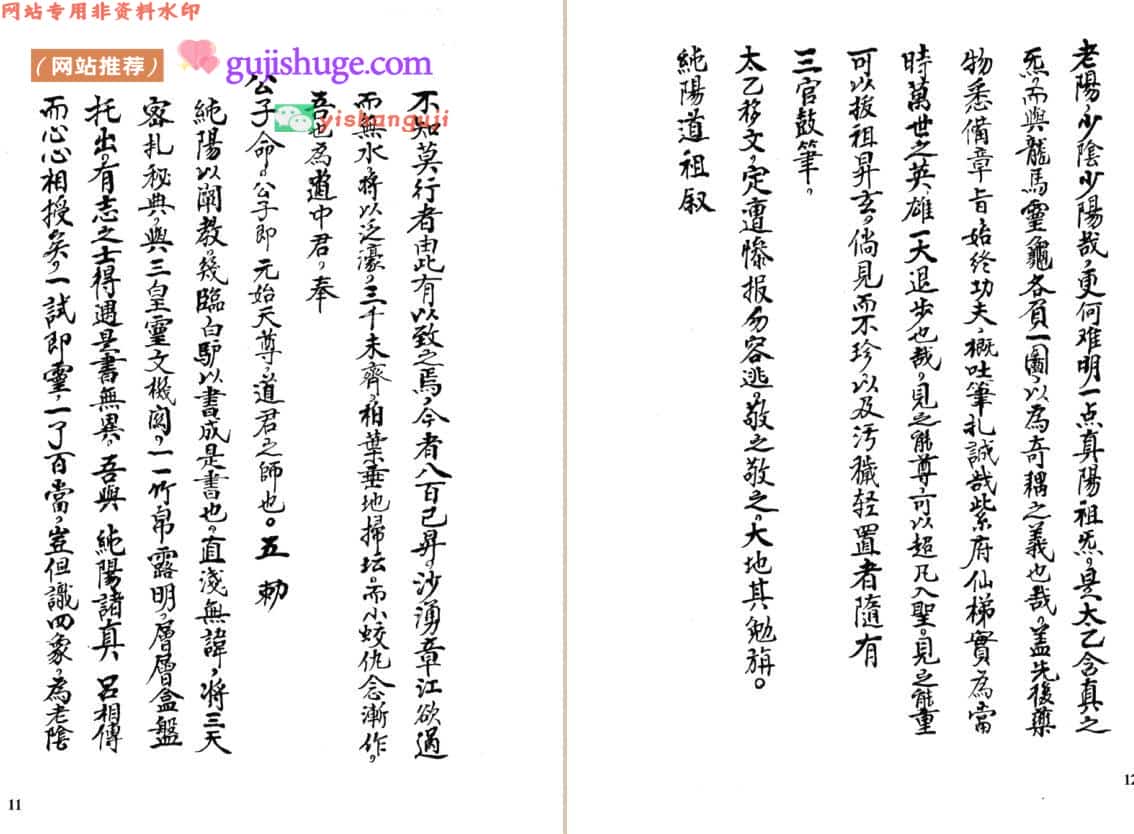 网站专用非资料水印
（网站推荐）
gujishuge.com
yishanguji
不知莫行者由此有以致之焉，今者八百已昇。沙湧章江欲過
而無水，將以泛濠。三千未齊，柏葉垂地掃坛。而小蛟仇念漸作，
吾也為道中君，奉
公子命。公子即元始天尊，道君之師也。五勅
純陽以闡教。幾臨白驴以書成是書也。直淺無諱，将三天
密扎秘典，與三皇靈文機関，一一竹帛露明，層層盒盤
托出。有志之士得遇是書無異，吾與純陽諸真口相傳
而心心相授矣。一試即靈，一了百當，豈但識四象，為老陰
11
老陽，少陰少陽哉，更何难明一点真陽祖炁。是太乙含真之
炁。而與龍馬靈龜各負一圖，以為奇耦之義也哉。盖先後藥
物悉備章旨始終功夫，概吐筆札誠哉紫府仙梯實為當
時萬世之英雄一大退步也哉。見之能尊，可以超凡入聖。見之能重
可以拔祖昇玄。倘見而不珍以及污穢轻置者隨有
三官鼓筆，
太乙移文，定遭慘报勿容逃。敬之敬之。大地其勉旃。
純陽道祖叙
12